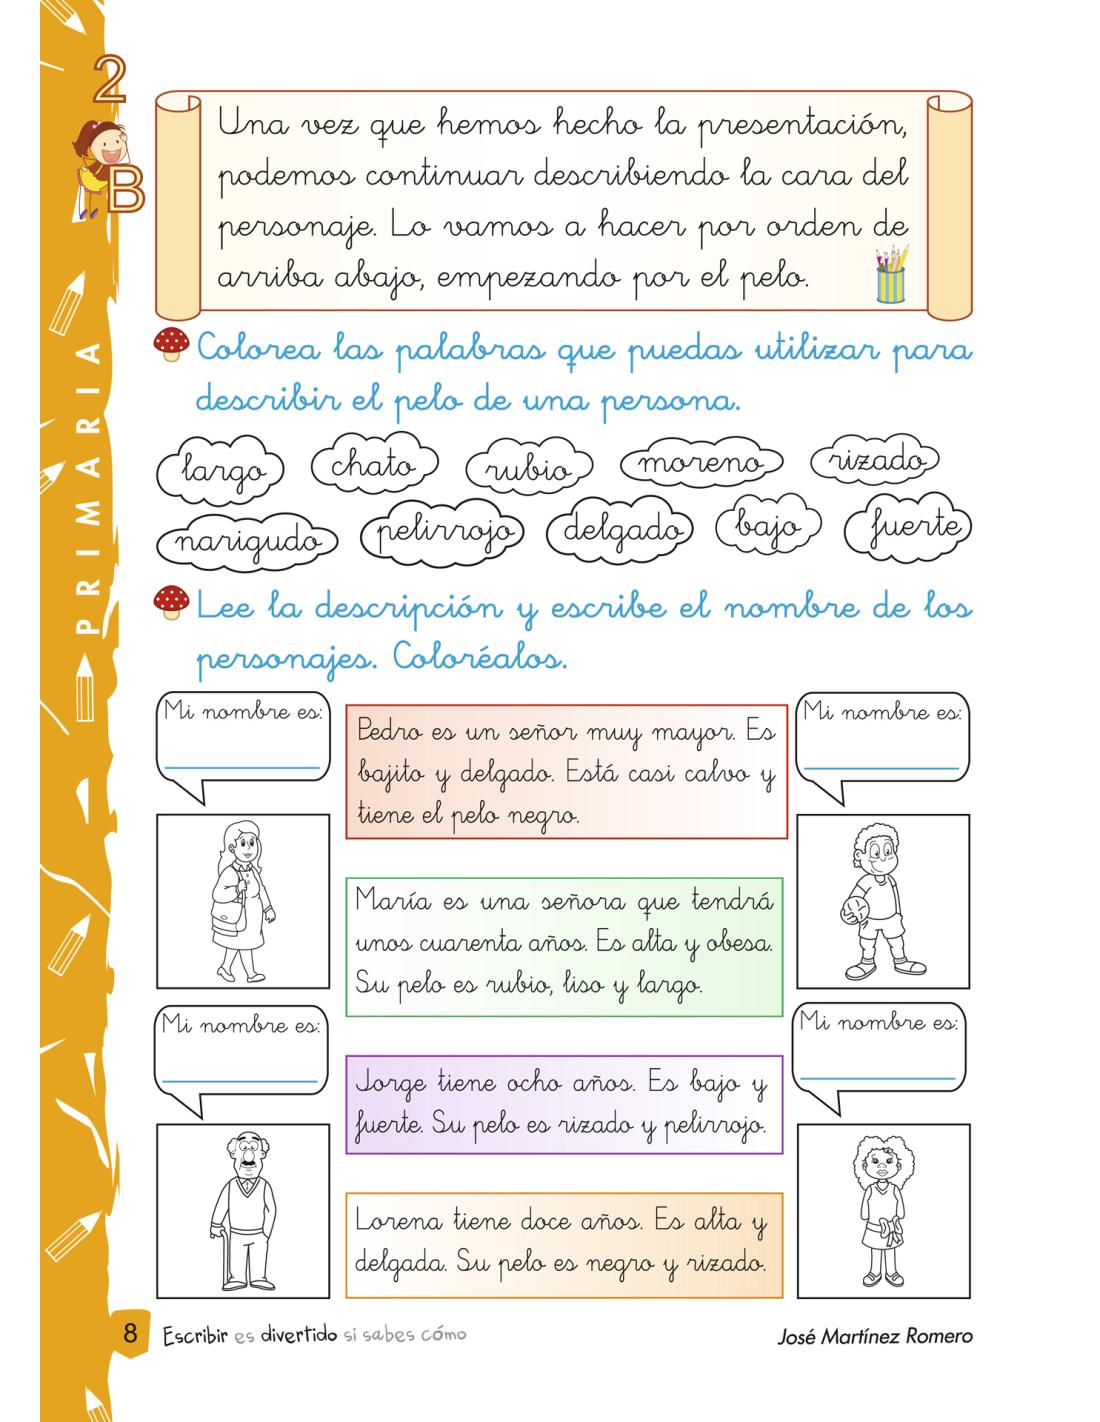 2
B
PRIMARIA
Una vez que hemos hecho la presentación,
podemos continuar describiendo la cara del
personaje. Lo vamos a hacer por orden de
arriba abajo, empezando por el pelo.
Colorea las palabras que puedas utilizar para
describir el pelo de una persona.
largo chato rubio moreno rizado
narigudo pelirrojo delgado bajo fuerte
Lee la descripción y escribe el nombre de los
personajes. Coloréalos.
Mi nombre es:
Pedro es un señor muy mayor. Es
bajito y delgado. Está casi calvo y
tiene el pelo negro.
Mi nombre es:
María es una señora que tendrá
unos cuarenta años. Es alta y obesa.
Su pelo es rubio, liso y largo.
Mi nombre es:
Jorge tiene ocho años. Es bajo y
fuerte. Su pelo es rizado y pelirrojo.
Mi nombre es:
Lorena tiene doce años. Es alta y
delgada. Su pelo es negro y rizado.
8 Escribir es divertido si sabes cómo
José Martínez Romero